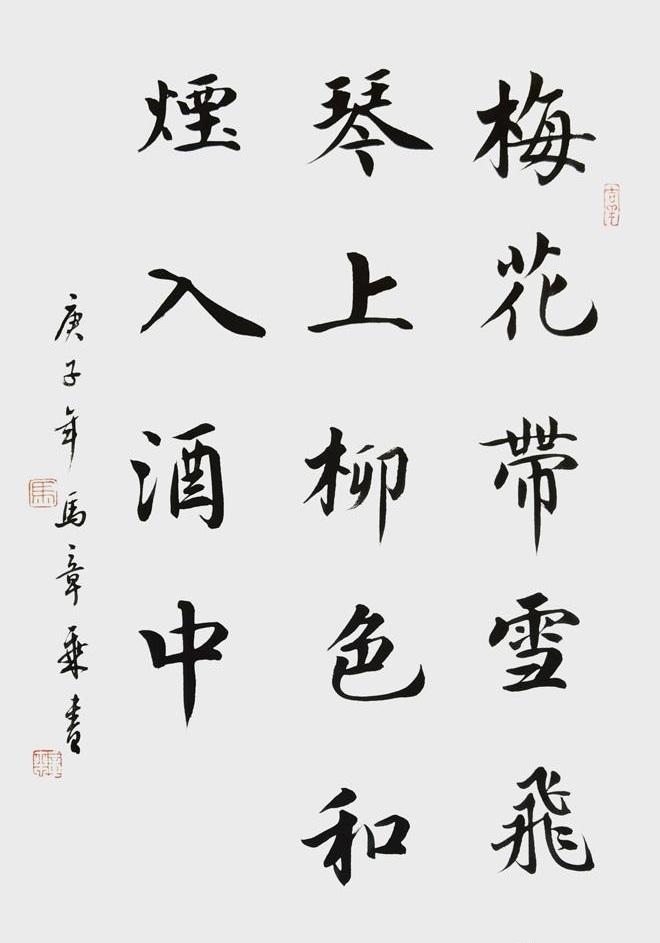 梅花帶雪飛
琴上柳色和
煙入酒中
庚子年馬章乘書
馬